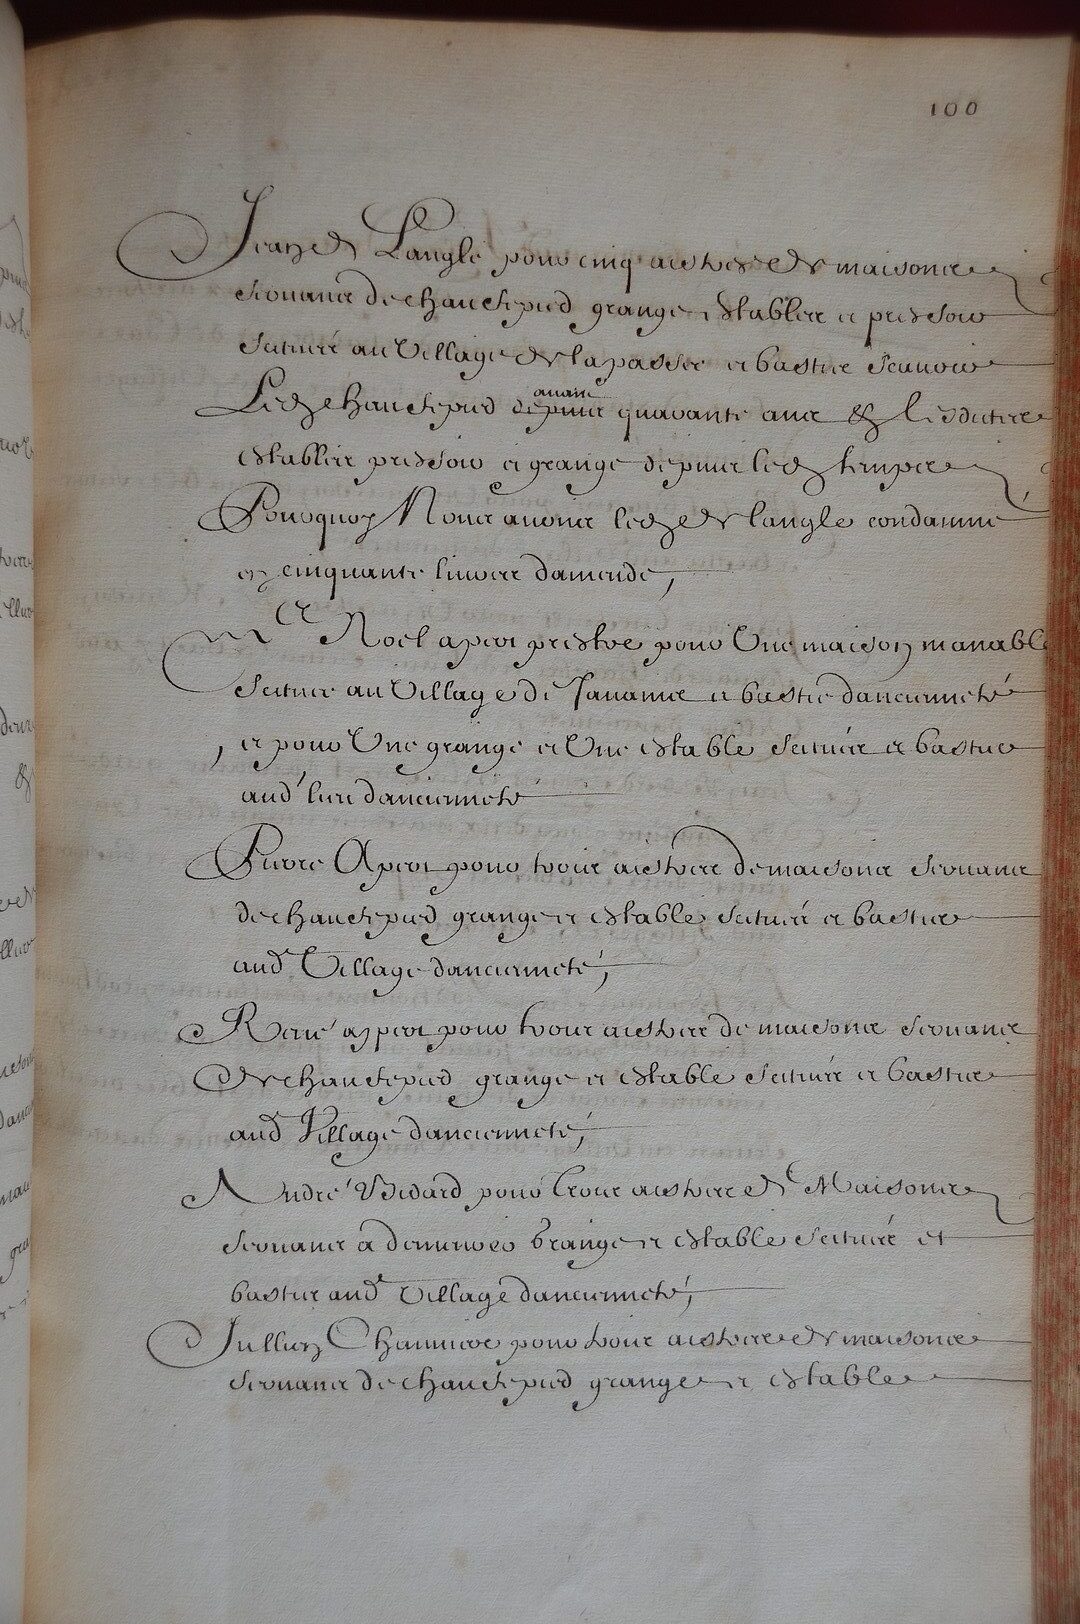 100
Jean de Langle pour cinq aistres de maisons
servans de chauffepied grange establer et pressoir
scituéz au Village de la passée et bastie scavoir
Led chauffepied depuis avant quarante ans & Lesdites
establer pressoir et grange depuis led temps
Pourquoy Nous avons led de langle condamné
en cinquante livres damende,
Mre Noel apert prestre pour Une maison manable
Scituee au Village de et bastie dancienneté
, et pour Une grange et Une estable Scituéz et basties
aud lieu danciennete
Pierre Apert pour trois aistres de maisons servans
de chauffepied grange et estable scituéz et basties
aud Village danciennete,
René appert pour trois aistres de maisons servans
de chauffepied grange et estable scituéz et basties
aud Village danciennete,
André Bidard pour trois aistres de Maisons
servans a demeurer Grange et estable scituéz et
basties aud Village danciennete,
Jullien Chauniere pour trois aistres de maisons
servans de chauffepied grange et estable